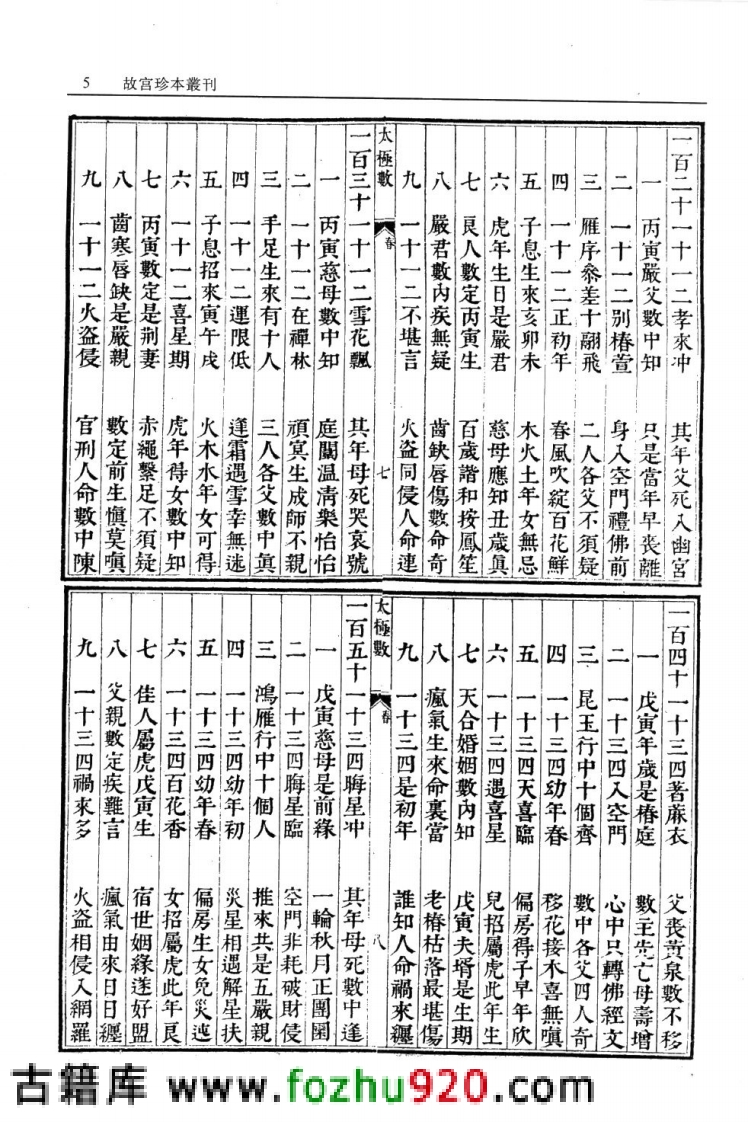 5 故宮珍本叢刊
一百二十 一十一二孝來冲 其年父死入幽宮
一 丙寅嚴父數中知 只是當年早喪離
二 一十一二別椿萱 身入空門禮佛前
三 雁序叅差十翮飛 二人各父不須疑
四 一十一二正初年 春風吹綻百花鮮
五 子息生來亥卯未 木火土年女無忌
六 虎年生日是嚴君 慈母應知丑歲真
七 良人數定丙寅生 百歲諧和按鳳笙
八 嚴君數內疾無疑 齒缺唇傷數命奇
九 一十一二不堪言 火盜同侵人命連
太極數 春 七
一百三十 一十一二雪花飄 其年母死哭哀號
一 丙寅慈母數中知 庭闈温清樂怡怡
二 一十一二在禪林 頑冥生成師不親
三 手足生來有十人 三人各父數中真
四 一十一二運限低 逢霜遇雪幸無迷
五 子息招來寅午戌 火木水年女可得
六 一十一二喜星期 虎年得女數中知
七 丙寅數定是荊妻 赤繩繫足不須疑
八 齒寒唇缺是嚴親 數定前生愼莫嗔
九 一十一二火盜侵 官刑人命數中陳
一百四十 一十三四著麻衣 父喪黃泉數不移
一 戊寅年歲是椿庭 數主先亡母壽增
二 一十三四入空門 心中只轉佛經文
三 昆玉行中十個齊 數中各父四人奇
四 一十三四幼年春 移花接木喜無嗔
五 一十三四天喜臨 偏房得子早年欣
六 一十三四遇喜星 兒招屬虎此年生
七 天合婚姻數內知 戊寅夫壻是生期
八 瘋氣生來命裏當 老椿枯落最堪傷
九 一十三四是初年 誰知人命禍來纏
太極數 春 八
一百五十 一十三四晦星冲 其年母死數中逢
一 戊寅慈母是前緣 一輪秋月正團圓
二 一十三四晦星臨 空門非耗破財侵
三 鴻雁行中十個人 推來共是五嚴親
四 一十三四幼年初 災星相遇解星扶
五 一十三四幼年春 偏房生女免災迍
六 一十三四百花香 女招屬虎此年良
七 佳人屬虎戊寅生 宿世姻緣遂好盟
八 父親數定疾難言 瘋氣由來日日纏
九 一十三四禍來多 火盜相侵入網羅
古籍库 www.fozhu920.com